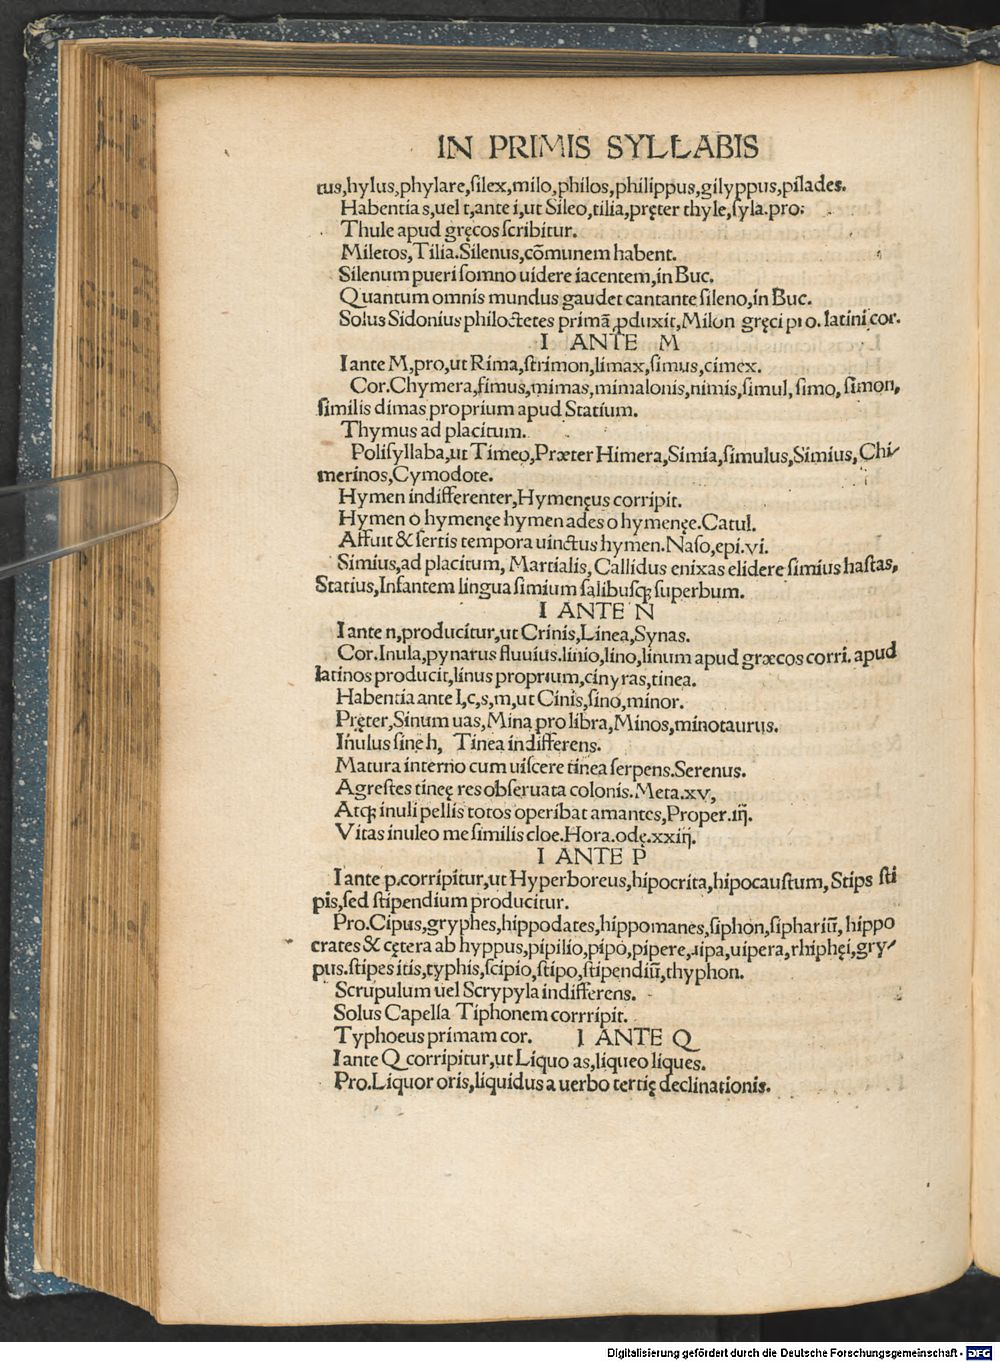 IN PRIMIS SYLLABIS
tus,hylus,phylare,ſilex,milo,philos,philippus,gilyppus,pilades.
Habentia s,uel t,ante i,ut Sileo,tilia,pręter thyle,ſyla.pro:
Thule apud gręcos ſcribitur.
Miletos,Tilia.Silenus,cõmunem habent.
Silenum pueri ſomno uidere iacentem,in Buc.
Quantum omnis mundus gaudet cantante ſileno,in Buc.
Solus Sidonius philoctetes primã ꝓduxit,Milon gręci pro.latini cor.
I ANTE M
I ante M,pro,ut Rima,ſtrimon,limax,ſimus,cimex.
Cor.Chymera,fimus,mimas,mimalonis,nimis,ſimul,ſimo,ſimon,
ſimilis dimas proprium apud Statium.
Thymus ad placitum.
Poliſyllaba,ut Timeo,Præter Himera,Simia,ſimulus,Simius,Chi-
merinos,Cymodote.
Hymen indifferenter,Hymenęus corripit.
Hymen o hymenęe hymen ades o hymenęe.Catul.
Affuit & ſertis tempora uinctus hymen.Naſo,epi.vi.
Simius,ad placitum, Martialis,Callidus enixas elidere ſimius haſtas,
Statius,Infantem lingua ſimium ſalibuſq; ſuperbum.
I ANTE N
I ante n,producitur,ut Crinis,Linea,Synas.
Cor.Inula,pynarus fluuius.linio,lino,linum apud græcos corri. apud
latinos producit,linus proprium,cinyras,tinea.
Habentia ante I,c,s,m,ut Cinis,ſino,minor.
Pręter,Sinum uas,Mina pro libra,Minos,minotaurus.
Inulus ſine h, Tinea indifferens.
Matura interno cum uiſcere tinea ſerpens.Serenus.
Agreſtes tineę res obſeruata colonis.Meta.xv,
Atq; inuli pellis totos operibat amantes,Proper.iij.
Vitas inuleo me ſimilis cloe.Hora.odę.xxiij.
I ANTE P
I ante p.corripitur,ut Hyperboreus,hipocrita,hipocauſtum, Stips ſti
pis,ſed ſtipendium producitur.
Pro.Cipus,gryphes,hippodates,hippomanes,ſiphon,ſiphariũ, hippo
crates & cętera ab hyppus,pipilio,pipo,pipere,ripa,uipera,rhiphęi,gry-
pus.ſtipes itis,typhis,ſcipio,ſtipo,ſtipendiũ,thyphon.
Scrupulum uel Scrypyla indifferens.
Solus Capella Tiphonem corrripit.
Typhoeus primam cor. I ANTE Q
I ante Q corripitur,ut Liquo as,liqueo liques.
Pro.Liquor oris,liquidus a uerbo tertię declinationis.
Digitalisierung gefördert durch die Deutsche Forschungsgemeinschaft - DFG